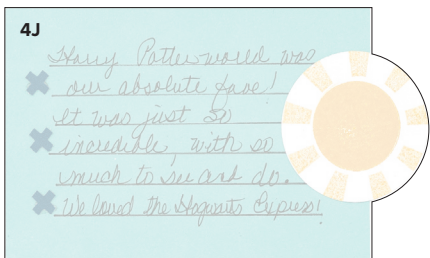 4J
Harry Potterworld was
our absolute fave!
It was just so
incredible, with so
much to see and do.
We loved the Hogwarts Express!